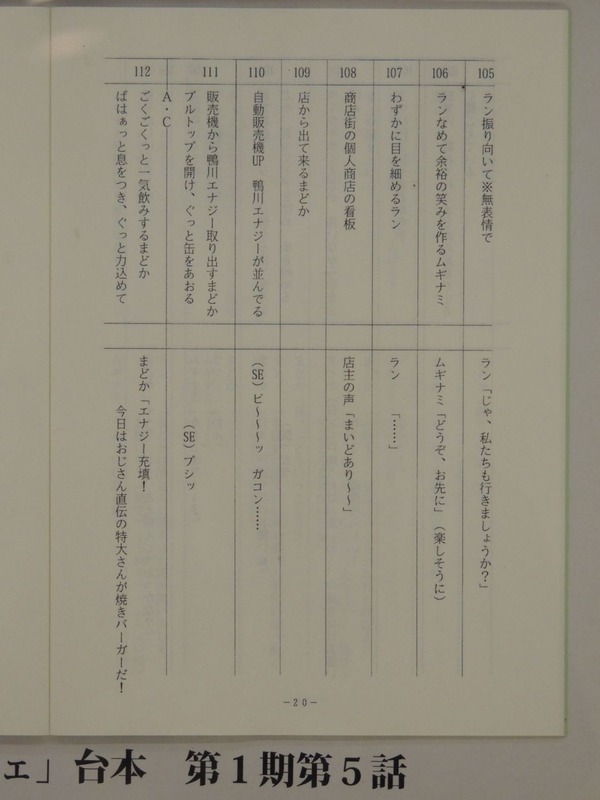 105
ラン振り向いて※無表情で
ラン「じゃ、私たちも行きましょうか?」
106
ランなめて余裕の笑みを作るムギナミ
ムギナミ「どうぞ、お先に」(楽しそうに)
107
わずかに目を細めるラン
ラン 「……」
108
商店街の個人商店の看板
店主の声「まいどあり〜〜」
109
店から出て来るまどか
110
自動販売機UP 鴨川エナジーが並んでる
(SE)ピ〜〜〜ッ ガコン……
111
販売機から鴨川エナジー取り出すまどか
プルトップを開け、ぐっと缶をあおる
(SE)プシッ
A・C
112
ごくごくっと一気飲みするまどか
ぱはぁっと息をつき、ぐっと力込めて
まどか「エナジー充填!
今日はおじさん直伝の特大さんが焼きバーガーだ!
-20-
ェ」台本 第1期第5話